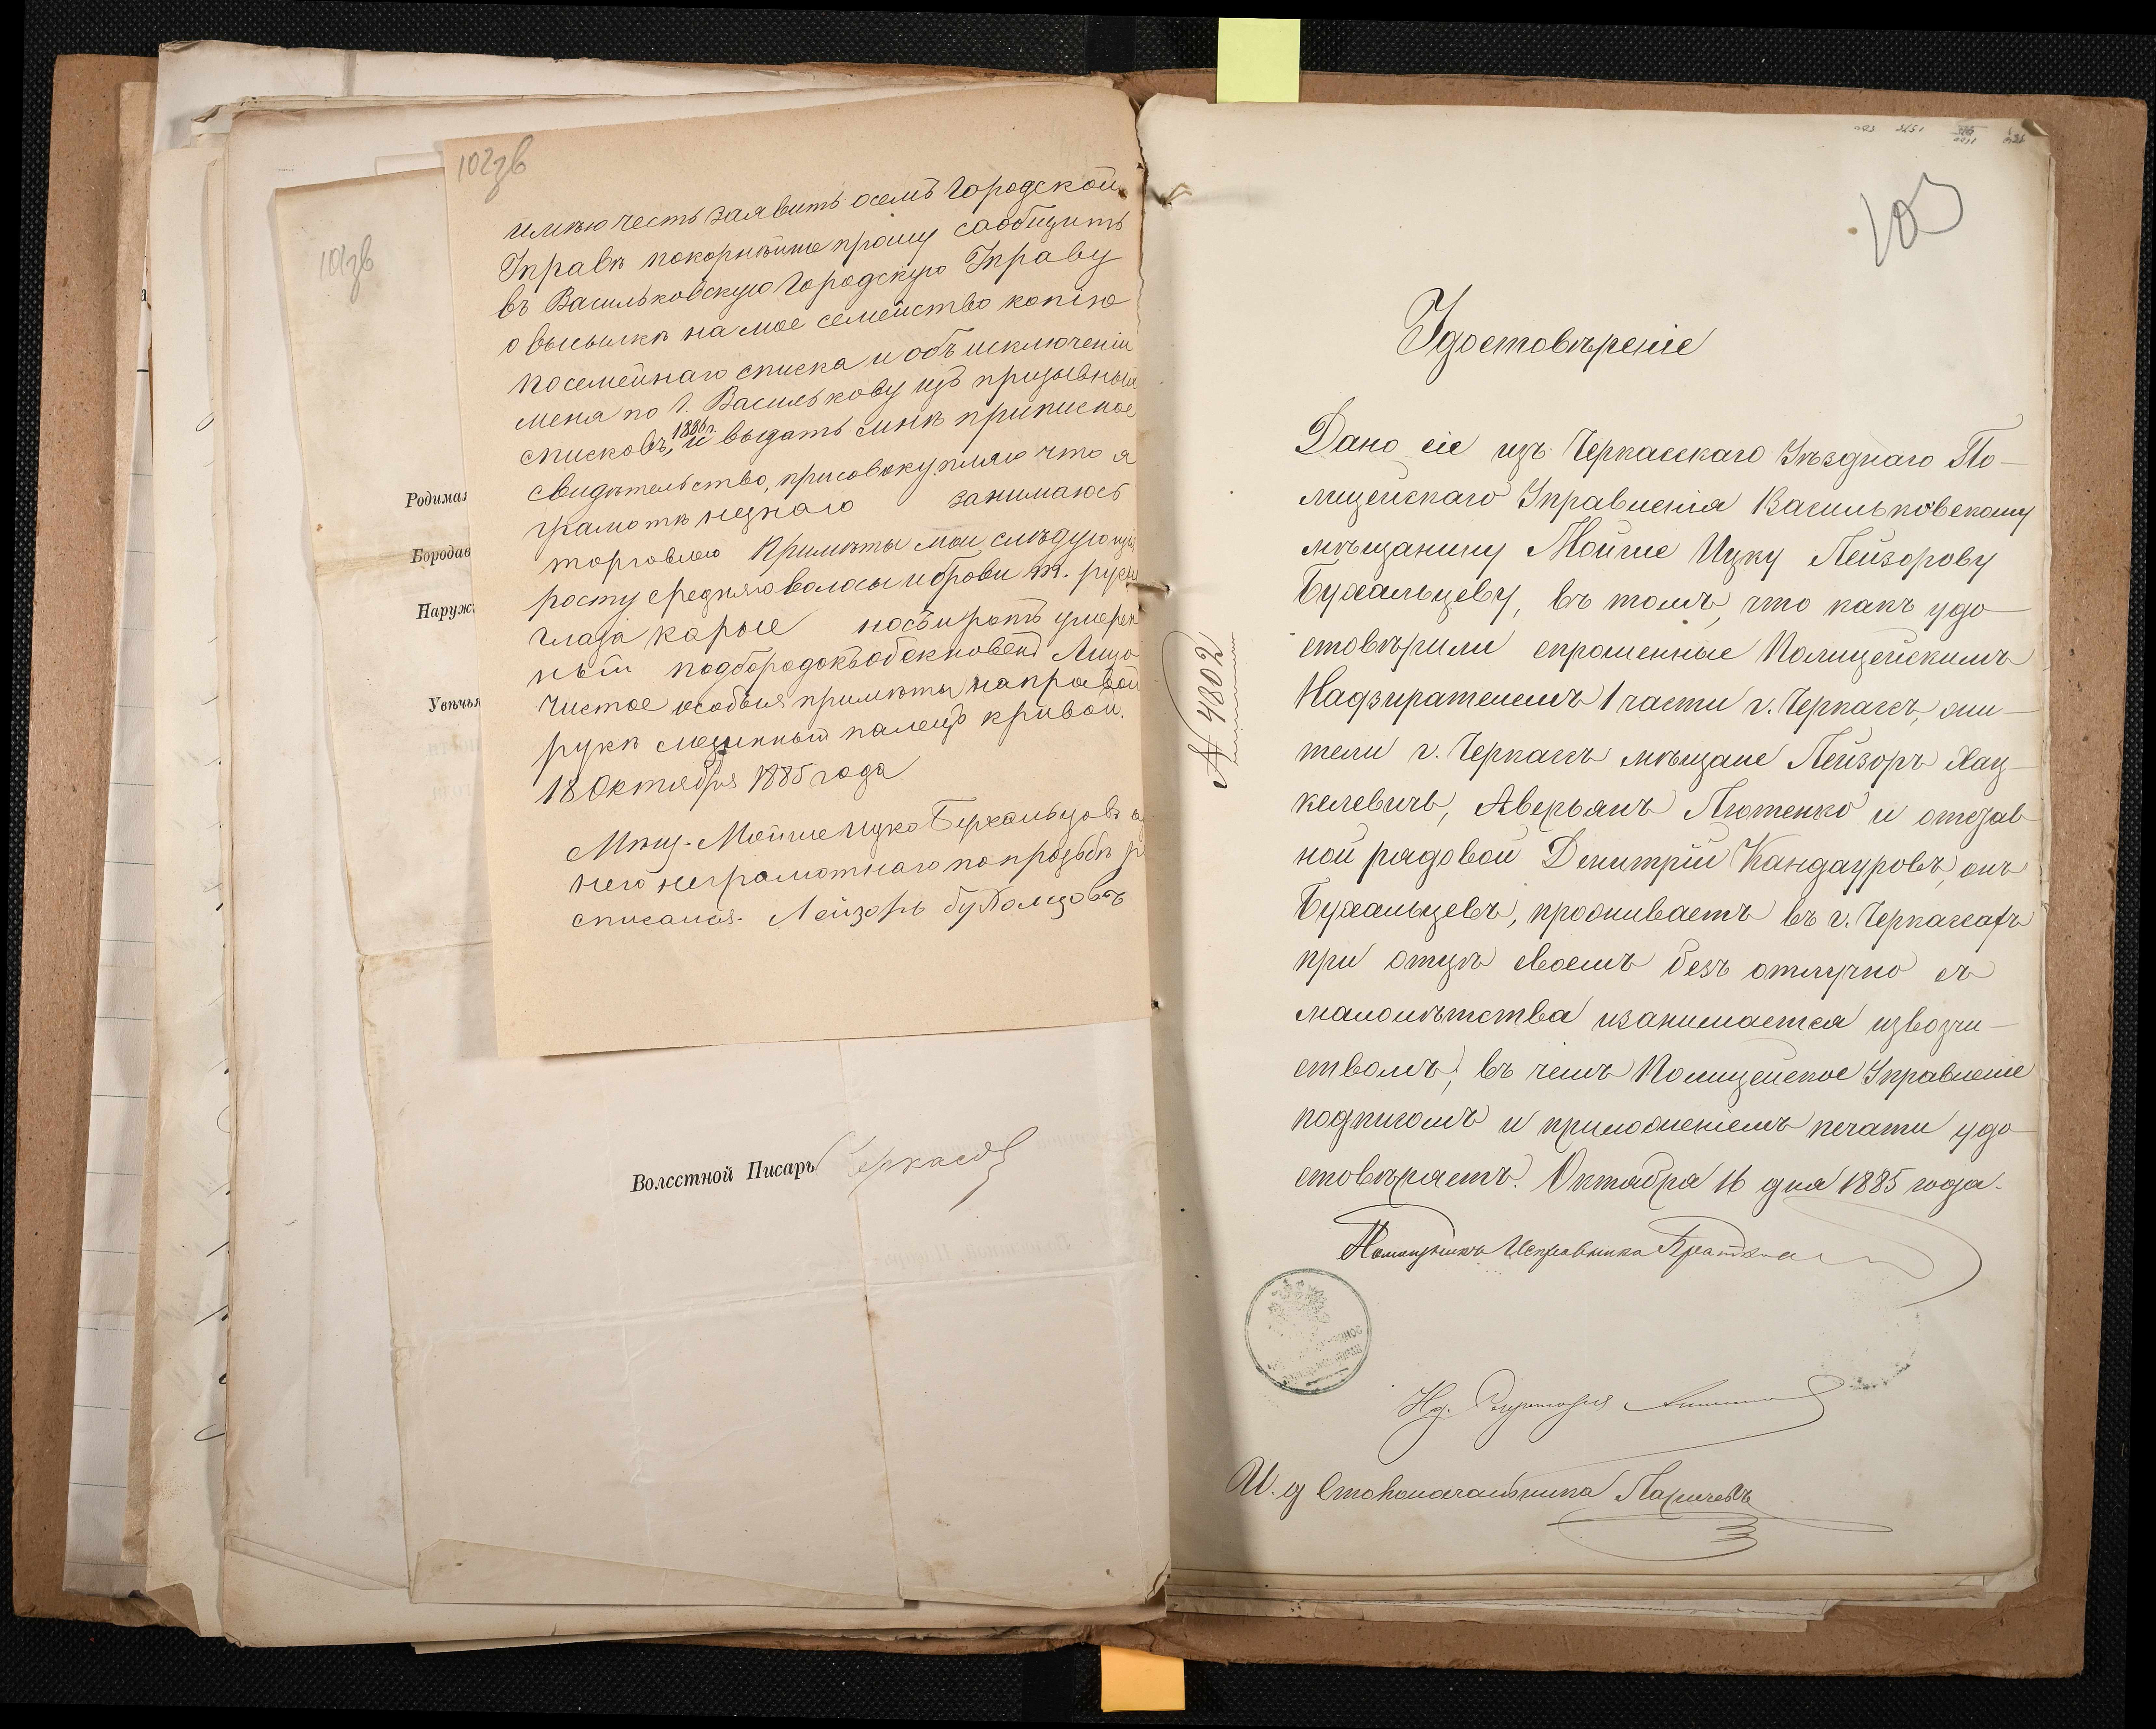 101зв
Родимая
Бородав
Наруж
Увѣчья
102зв
имѣю честь заявить осемъ Городской
Управѣ покорнѣйше прошу сообщить
въ Васильковскую Городскую Управу
о высылкѣ на мое семейство копію
посемейнаго списка и объ исключеніи
меня по г. Василькову изъ призывныхъ
1886 г.
списковъ, и выдать мнѣ приписное
свидѣтельство, присовокупляю что я
грамотѣ незнаю занимаюсь
торговлею Примѣты мои слѣдующія
росту средняго воласы и брови т. русы
глаза карые носъ и ротъ умерен
ный подбородокъ обекновенъ Лицо
чистое особыя примѣты на правой
рукѣ мезинный палецъ кривой.
18 Октября 1885 года
Мѣщ. Мойше Ицко Бухальцовъ а
него неграмотнаго попрозьбѣ р
списался. Лейзоръ бухалцовъ
Волостной Писарь Черкасов
103
Удостовѣреніе
№ 4802
Дано сіе изъ Черкасскаго Уѣзднаго По-
лицейскаго Управленія Васильковскому
мѣщанину Мойше Ицку Лейзорову
Бухальцеву, въ томъ, что какъ удо
стовѣрили спрошенные Полицейскимъ
Надзирателемъ 1 части г. Черкассъ, жи-
тели г. Черкассъ мѣщане Лейзоръ Хац-
келевичъ, Аверьянъ Лютенко и отстав
ной рядовой Дмитрій Кандауровъ, онъ
Бухальцевъ, проживаетъ въ г. Черкассахъ
при отцѣ своемъ безъ отлучно съ
малолѣтства изанимается извозчи-
ствомъ, въ чемъ Полицейское Управленіе
подписомъ и приложеніемъ печати удо
стовѣряетъ. Октября 16 дня 1885 года.
Помощникъ Исправника
Нд. Секретаря
И. д Столоначальника Ларичевъ